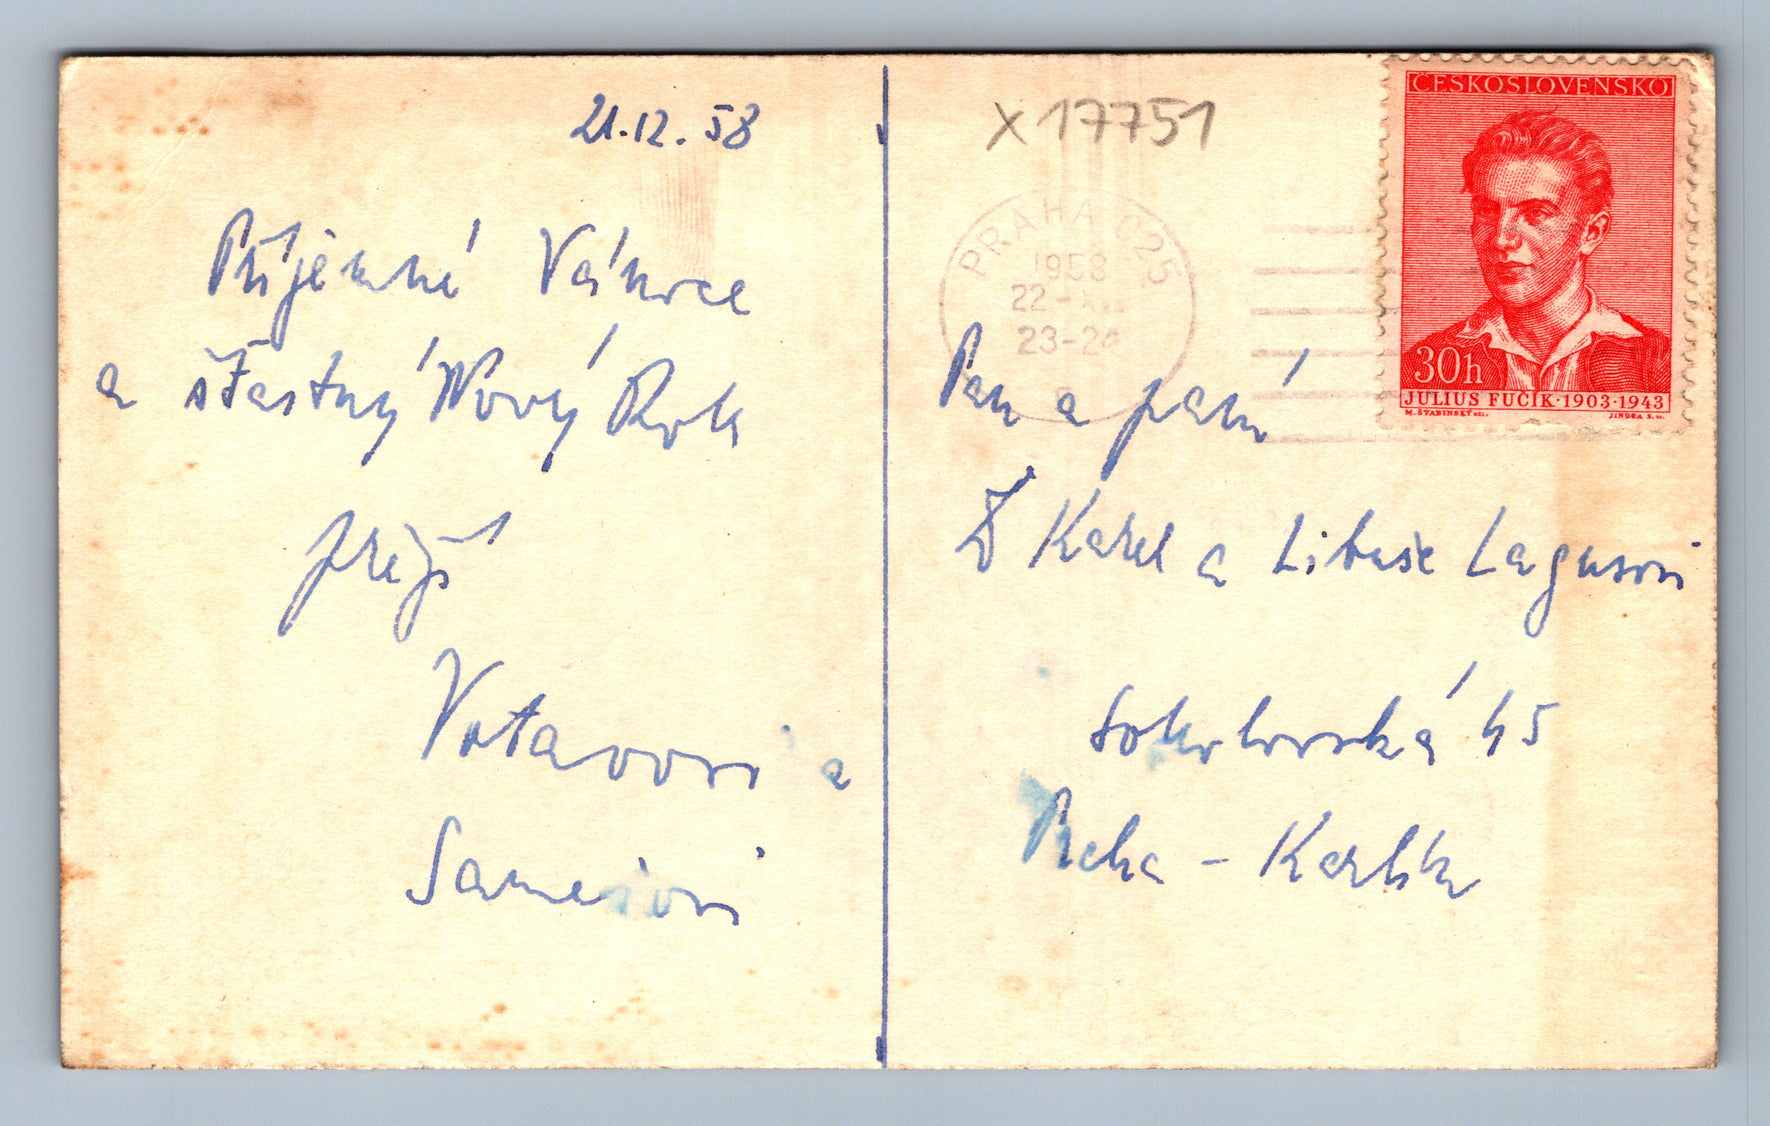 21.12.58
Příjemné Vánoce
a šťastný Nový Rok
přejí
Votavovi a
X 17751
PRAHA 025
1958
22-XII
23-24
ČESKOSLOVENSKO
30h
JULIUS FUČÍK·1903·1943
M. ŠVABINSKÝ DEL.
JINDRA SC.
Pan a paní
Karel a Libuše Lagusovi
Sokolovská 45
Praha - Karlín